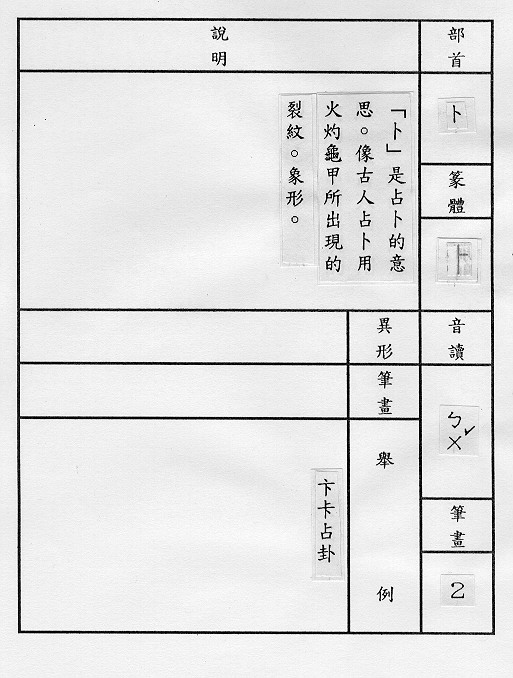 部首
卜
篆體
卜
音讀
ㄅㄨˇ
筆畫
2
說明
「卜」是占卜的意
思。像古人占卜用
火灼龜甲所出現的
裂紋。象形。
異形
筆畫
舉例
卞卡占卦